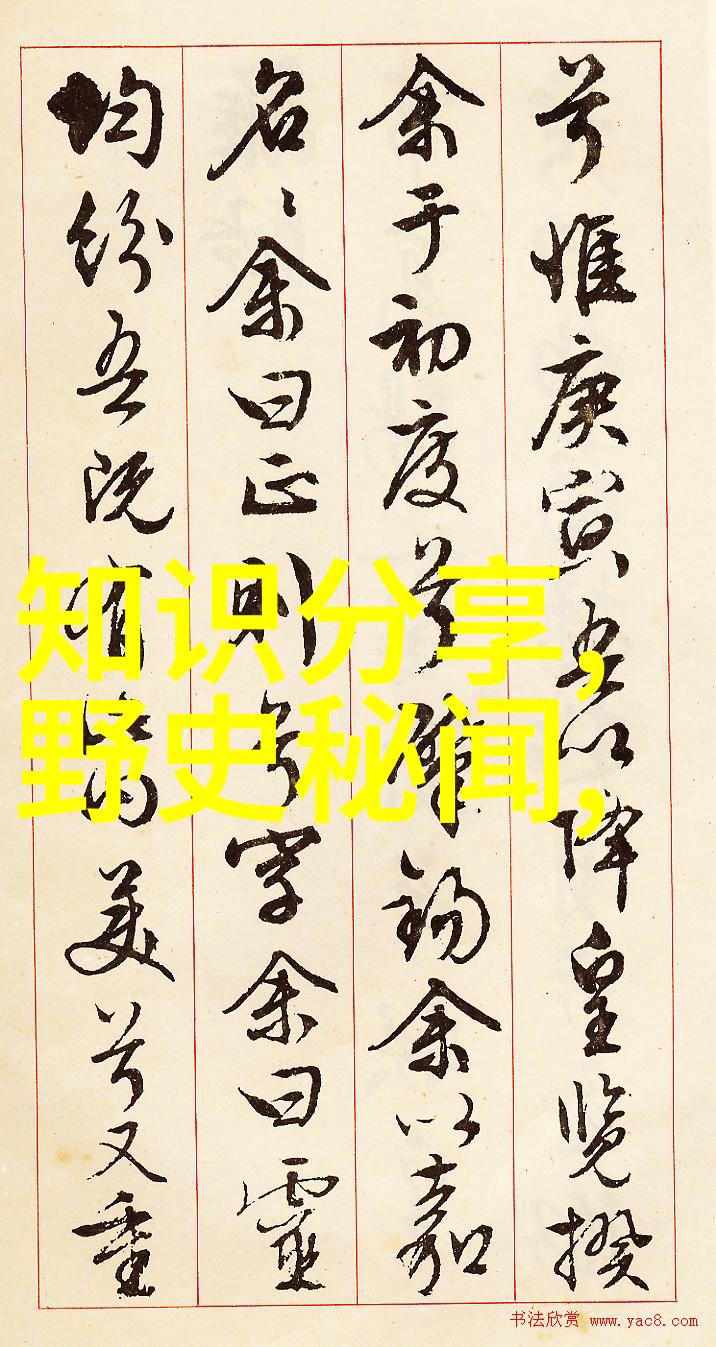 兮惟庚寅吾以降皇覽揆
余于初度兮肇錫余以嘉
名〻余曰正則兮字余曰靈
均紛吾既有此内美兮又重
知识分享,
野史秘闻,
书法欣赏 www.yac8.com